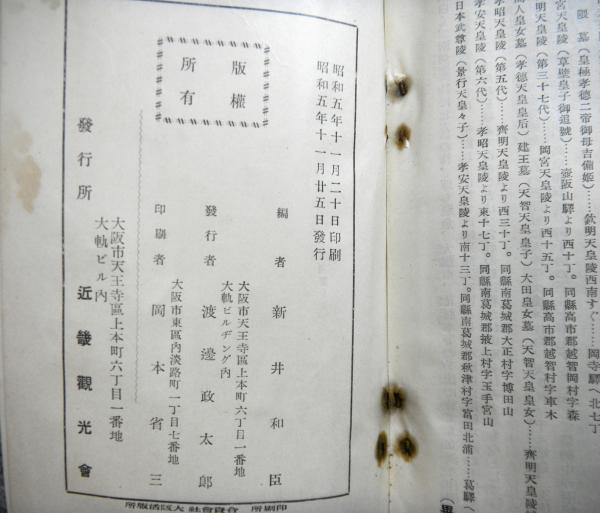 隈墓(皇極孝德二帝御母吉備姬)……欽明天皇陵西南すぐ……岡寺驛へ北七丁
宮天皇陵(草壁皇子御追號)……壺阪山驛より西十丁。同縣高市郡越智岡村字森
明天皇陵(第三十七代)……岡宮天皇陵より西十五丁。同縣高市郡越智村字車木
人皇女墓(孝德天皇皇后)建王墓(天智天皇皇子)大田皇女墓(天智天皇皇女)……齊明天皇陵
孝昭天皇陵(第五代)……齊明天皇陵より西三十丁。同縣南葛城郡大正村字博田山
孝安天皇陵(第六代)……孝昭天皇陵より東十七丁。同縣南葛城郡掖上村字玉手宮山
日本武尊陵(景行天皇々子)……孝安天皇陵より南十三丁。同縣南葛城郡秋津村字富田北浦……葛驛へ
昭和五年十一月二十日印刷
昭和五年十一月廿五日發行
版權
所有
編者 新井和臣
大阪市天王寺區上本町六丁目一番地
大軌ビルヂング內
發行者 渡邊政太郎
大阪市東區內淡路町一丁目七番地
印刷者 岡本省三
大阪市天王寺區上本町六丁目一番地
大軌ビル內
發行所 近畿觀光會
印刷所 合資會社 大阪活版所